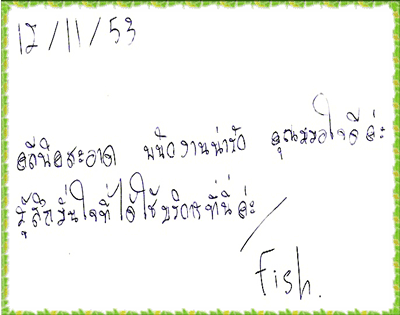 12/11/53
คลีนิคสะอาด พนักงานน่ารัก คุณหมอใจดีค่ะ
รู้สึกมั่นใจที่ได้ใช้บริการที่นี่ค่ะ
Fish.